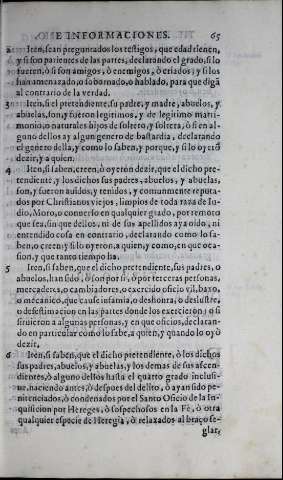 E INFORMACIONES. 65
2 Iten, sean preguntados los testigos, que edad tienen,
y si son parientes de las partes, declarando el grado, si lo
fueren, ò si son amigos, ò enemigos, ò criados; y si los
han amenazado, o sobornado, o hablado, para que digã
al contrario de la verdad.
3 Iten, si el pretendiente, su padre, y madre, abuelos, y
abuelas, son, y fueron legitimos, y de legitimo matri-
monio, o naturales hijos de soltero, y soltera, ò si en al-
guno dellos ay algun genero de bastardia, declarando
el genero della, y como lo saben, y porque, y si lo oyerõ
dezir, y a quien.
4 Iten, si saben, creen, ò oyeron dezir, que el dicho pre-
tendiente, y los dichos sus padres, abuelos, y abuelas,
son, y fueron auidos, y tenidos, y comunmente reputa-
dos por Christianos viejos, limpios de toda raza de Iu-
dio, Moro, o conuerso en qualquier grado, por remoto
que sea, sin que dellos, ni de sus apellidos aya oido, ni
entendido cosa en contrario, declarando como lo sa-
ben, o creen; y si lo oyeron, a quien, y como, en que oca-
sion, y que tanto tiempo ha.
5 Iten, si saben, que el dicho pretendiente, sus padres, o
abuelos, han sido, ò son por si, ò por terceras personas,
mercaderes, o cambiadores, o exercido oficio vil, baxo,
o mecanico, que cause infamia, o deshonra, o deslustre,
o desestimacion en las partes donde los exercieron; o si
siruieron a algunas personas, y en que oficios, declaran-
do en particular como lo sabe, a quien, y quando lo oyò
dezir.
6 Iten, si saben, que el dicho pretendiente, ò los dichos
sus padres, abuelos, y abuelas, y los demas de sus ascen-
dientes, ò alguno dellos hasta el quarto grado inclusi-
ue, naciendo antes, ò despues del delito, ò ayan sido pe-
nitenciados, ò condenados por el Santo Oficio de la In-
quisicion por Hereges, ò sospechosos en la Fè, ò otra
qualquier especie de Heregia, ò relaxados al braço se-
glar,